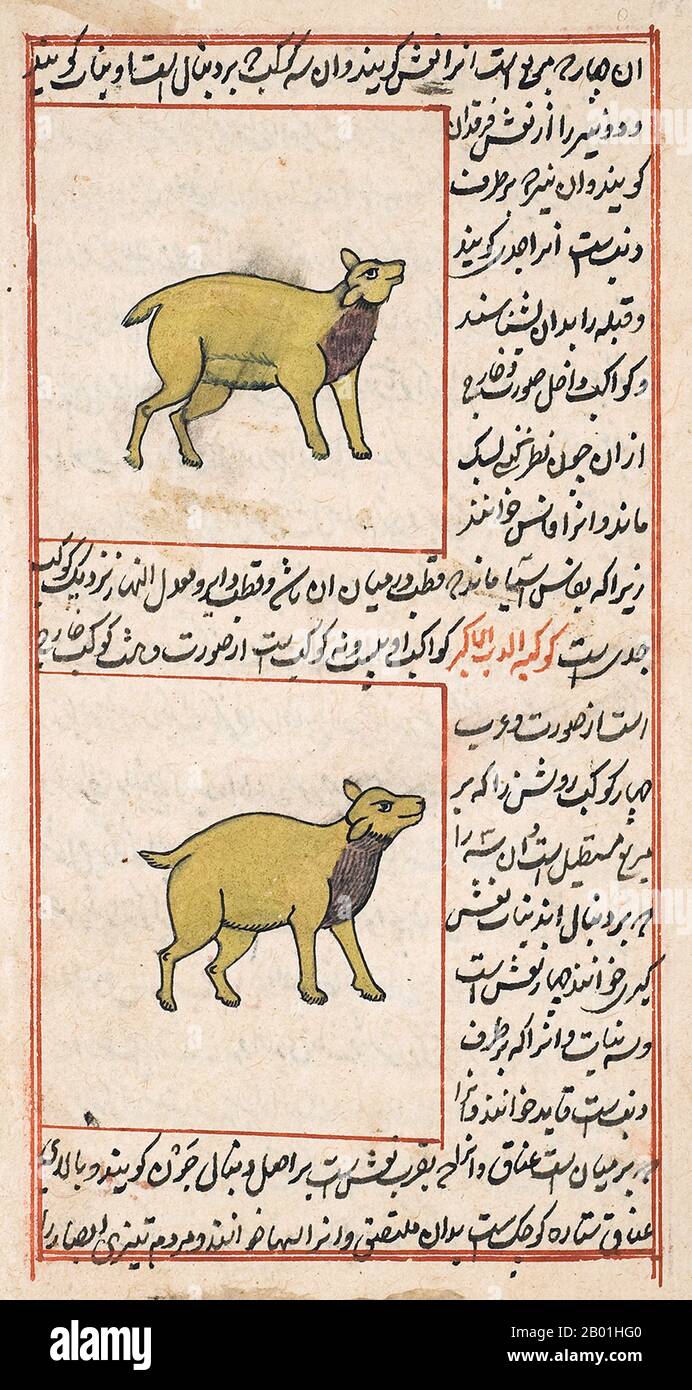 ان چهار بر مربع است انرا نعش گویند وان سه کوکب که بر دنبال است او بنات گویند
و دو نیر را از نعش فرقدان
گویند و ان نیر که بر طرف
دنبست انرا جدی گویند
و قبله را بدان بشناسند
و کواکب داخل صورت و خارج
از ان چون نظر کنی بسمک
ماند و انرا فاس خوانند
زیرا که بفاس اسیا ماند و قطب در میان ان باشد و قطب دایره معدل النهار نزدیک کوکب
جدی است کوکبه الدب الاکبر کواکب او بیست و نه کوکب است از صورت و هشت کوکب خارج
است از صورت و عرب
چهار کوکب روشن را که بر
مربع مستطیل است و ان سه را
که بر دنبال اند بنات نعش
کبری خوانند چهار نعش است
و سه بنات و انرا که بر طرف
دنبست قاید خوانند و انرا
که بر میان است عناق و انرا که بقرب نعش است بر اصل دنبال جون گویند و بالای
عناق ستاره کوچک است بدان ملتصق و انرا سها خوانند و مردم تیزی ابصار را
alamy
Image ID: 2B01HG0
www.alamy.com